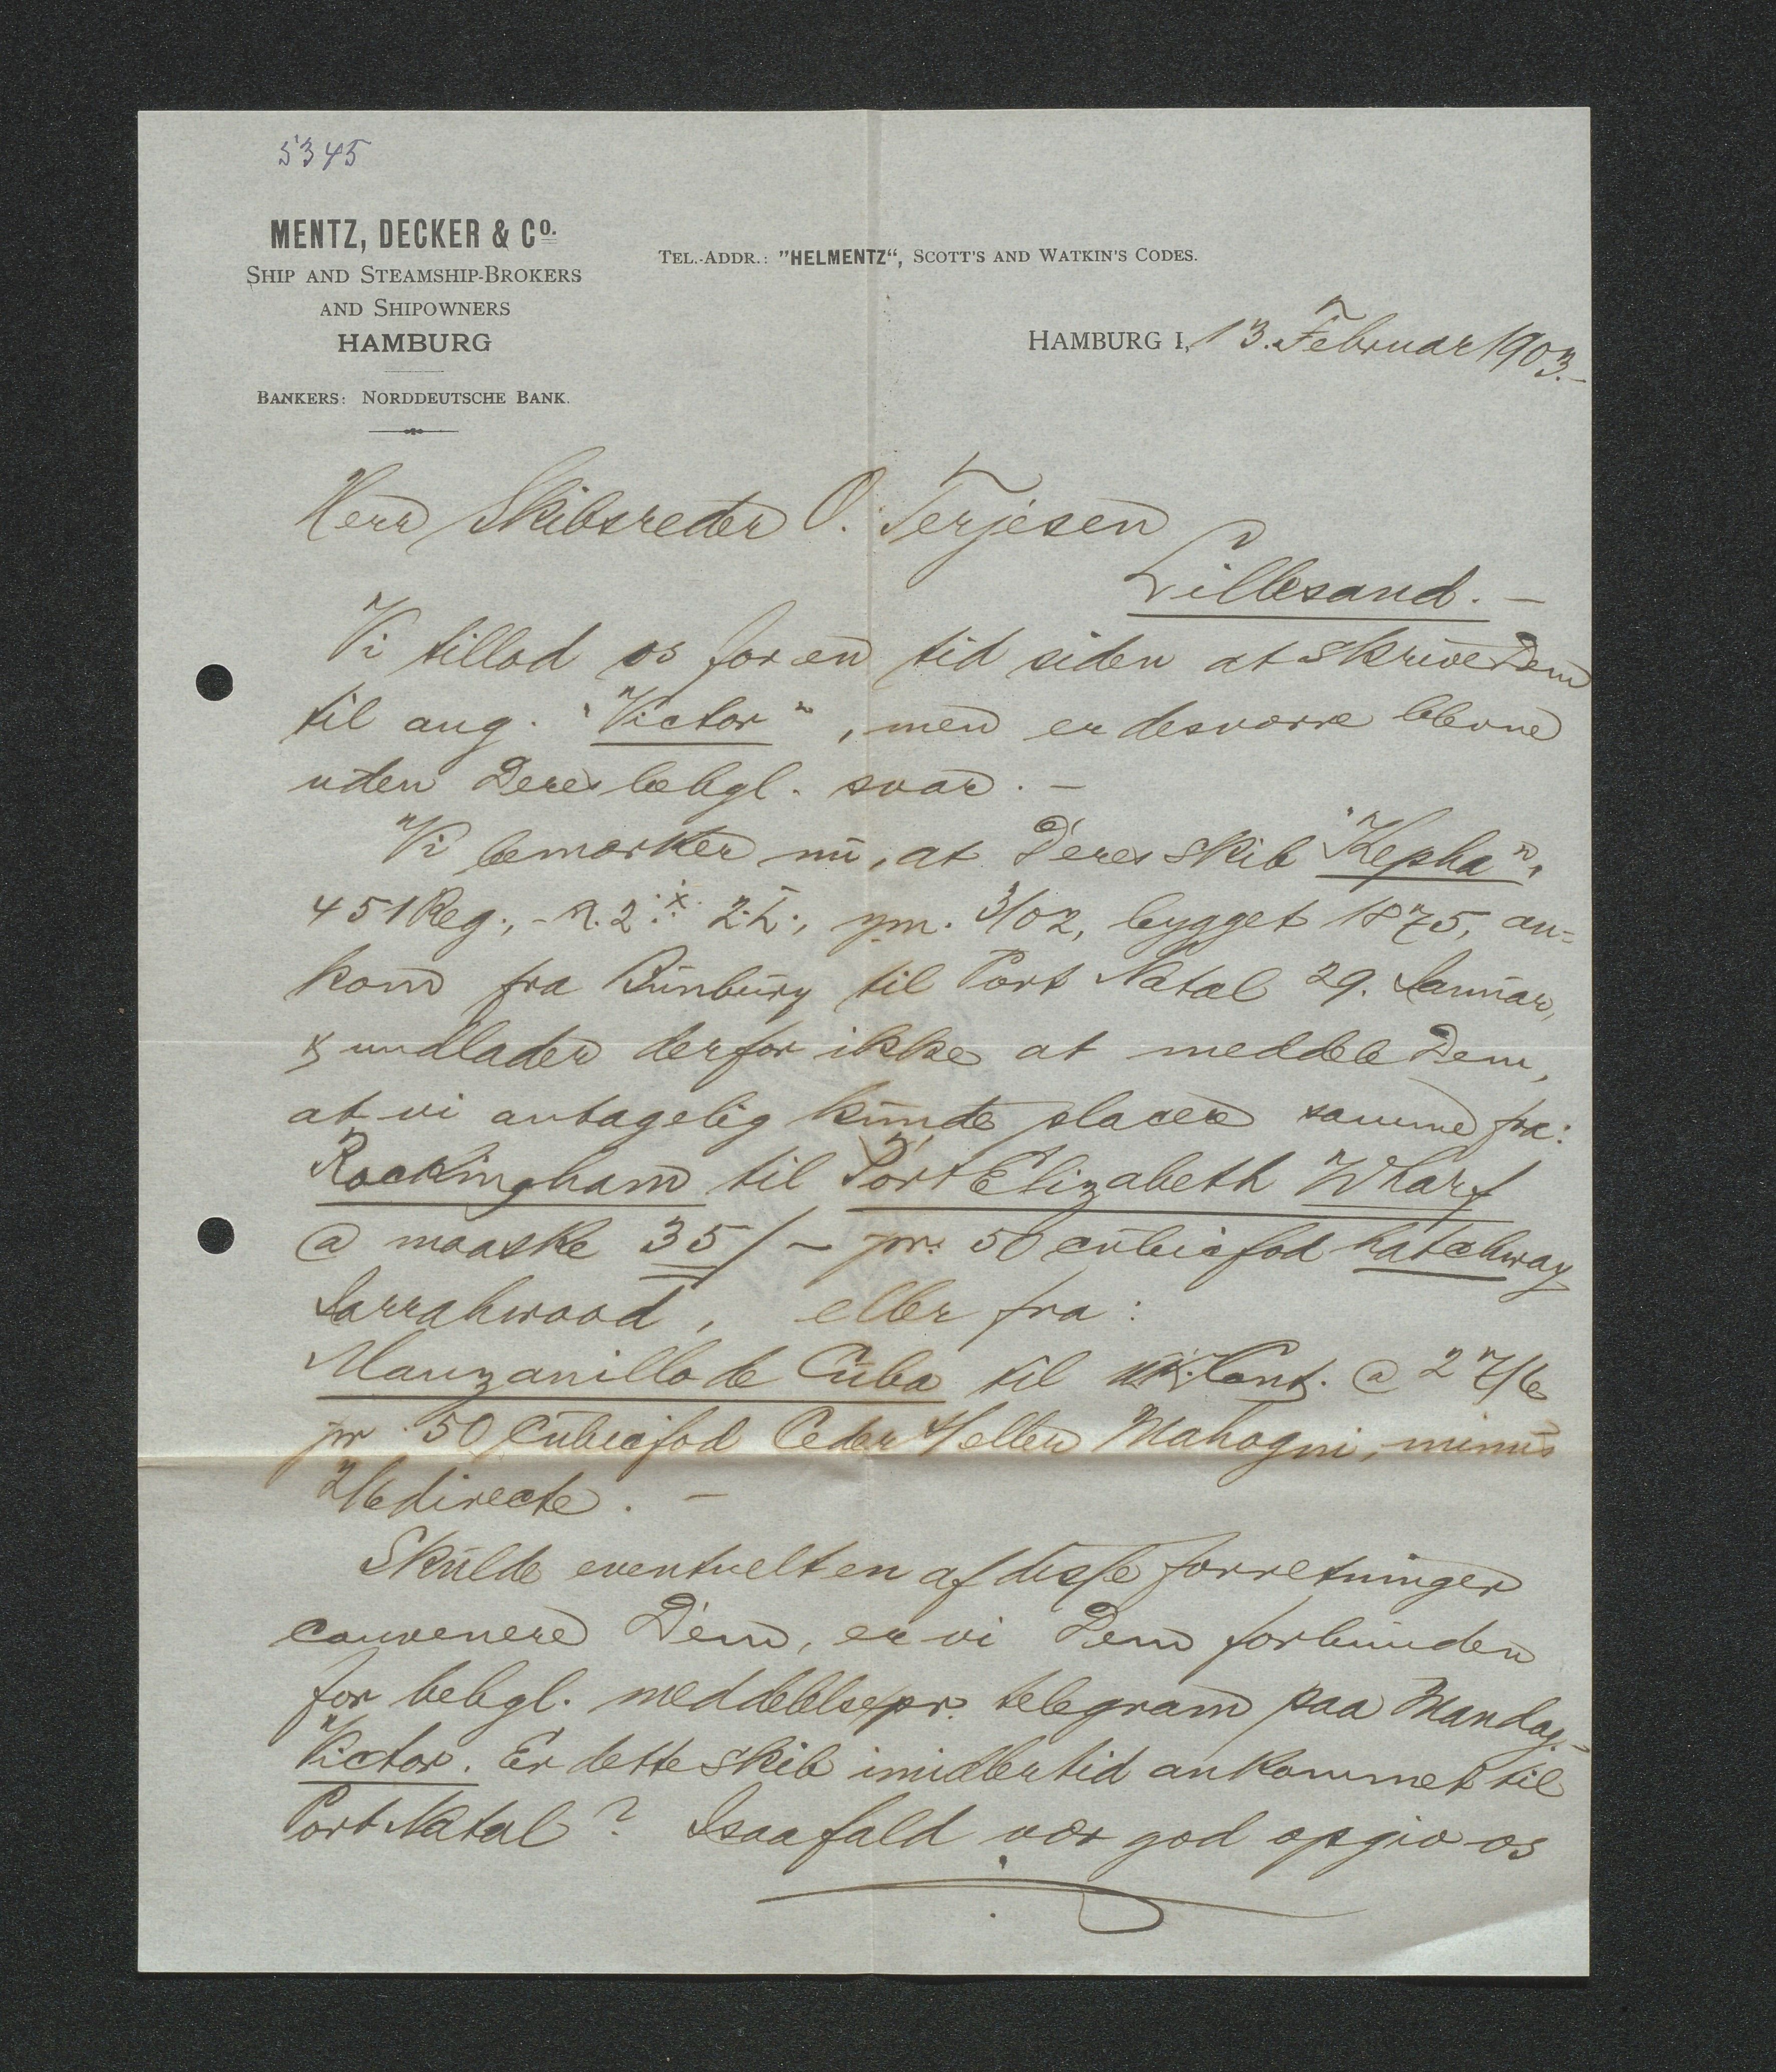 5345
MENTZ, DECKER & Co.
SHIP AND STEAMSHIP-BROKERS
AND SHIPOWNERS
HAMBURG
BANKERS: NORDDEUTSCHE BANK.
TEL.-ADDR.: "HELMENTZ", SCOTT'S AND WATKIN'S CODES.
HAMBURG I, 13. Februar 1903.-
Herr Skibsreder O. Terjesen
Lillesand. -
Vi tillod os for en tid siden at skrive Dem
til ang. "Victor", men er desværre blevne
uden Deres behgl. svar. -
Vi bemærker nu, at Deres skib "Kepha",
451 Reg., 3/02, bygget 1875, an=
kom fra Bunbury til Port Natal 29. Januar,
& undlader derfor ikke at meddele Dem,
at vi antagelig kunde placere samme fra:
Rockingham til Port Elizabeth Wharf
@ maaske 35/- pr. 50 cubicfod hatchway
Jarrahwood, eller fra:
Manzanillo de Cuba til UK./Cont. @ 27/6
pr 50 Cubicfod Ceder &/eller Mahogni, minus
2/6 directe. -
Skulde eventuelt en af disse forretninger
convenere Dem, er vi Dem forbunden
for behgl. meddelelse pr. telegram paa Mandag.-
Victor. Er dette skib imidlertid ankommet til
Port Natal? Isaafald vær god opgiv os